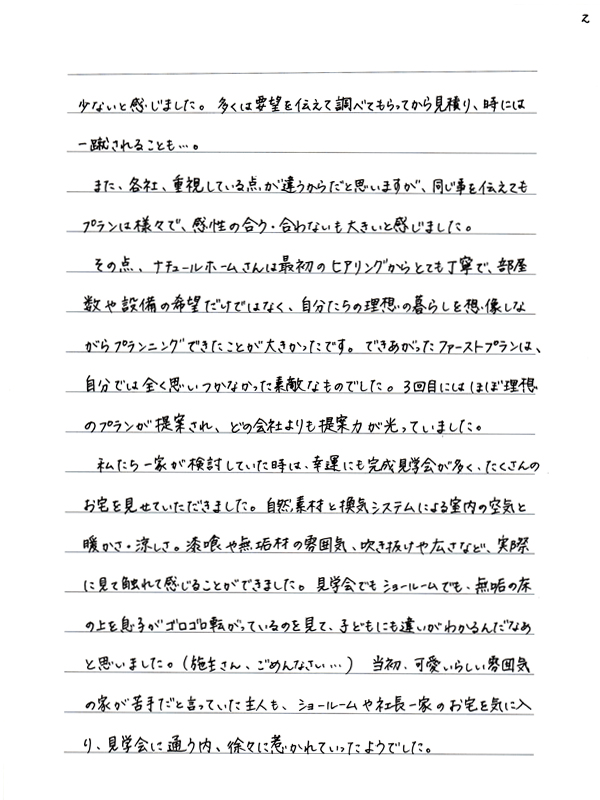 2
少ないと感じました。多くは要望を伝えて調べてもらってから見積り、時には
一蹴されることも…。
また、各社、重視している点が違うからだと思いますが、同じ事を伝えても
プランは様々で、感性の合う・合わないも大きいと感じました。
その点、ナチュールホームさんは最初のヒアリングからとても丁寧で、部屋
数や設備の希望だけではなく、自分たちの理想の暮らしを想像しな
がらプランニングできたことが大きかったです。できあがったファーストプランは、
自分では全く思いつかなかった素敵なものでした。3回目にはほぼ理想
のプランが提案され、どの会社よりも提案力が光っていました。
私たち一家が検討していた時は、幸運にも完成見学会が多く、たくさんの
お宅を見せていただきました。自然素材と換気システムによる室内の空気と
暖かさ・涼しさ。漆喰や無垢材の雰囲気、吹き抜けや広さなど、実際
に見て触れて感じることができました。見学会でもショールームでも、無垢の床
の上を息子がゴロゴロ転がっているのを見て、子どもにも違いがわかるんだなあ
と思いました。(施主さん、ごめんなさい…) 当初、可愛いらしい雰囲気
の家が苦手だと言っていた主人も、ショールームや社長一家のお宅を気に入
り、見学会に通う内、徐々に惹かれていったようでした。